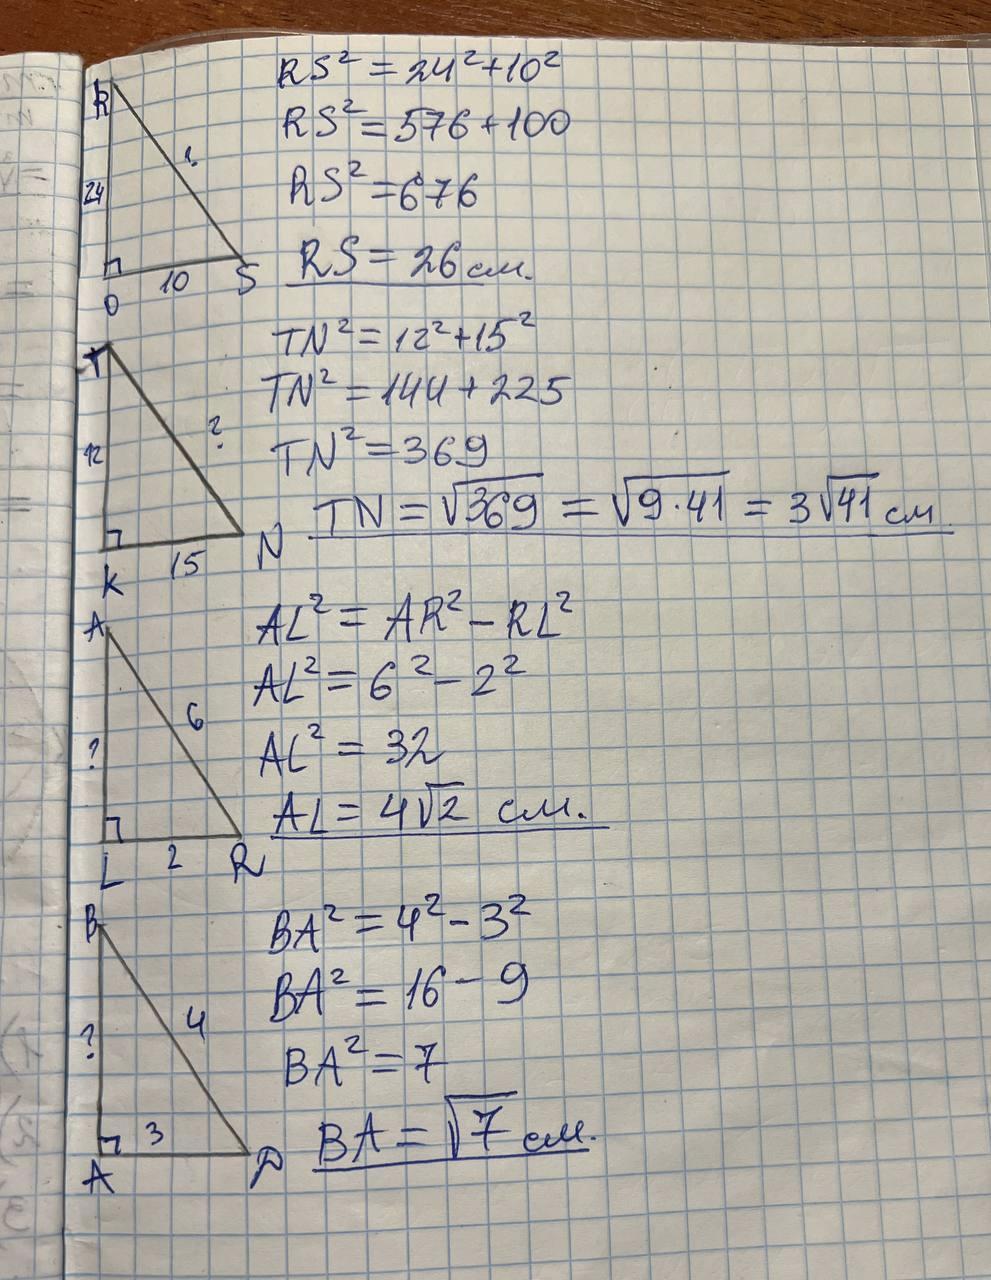 R
24
?
O
10
S
RS² = 24² + 10²
RS² = 576 + 100
RS² = 676
RS = 26 см.
T
12
?
K
15
N
TN² = 12² + 15²
TN² = 144 + 225
TN² = 369
TN = √369 = √9·41 = 3√41 см.
A
?
6
L
2
R
AL² = AR² - RL²
AL² = 6² - 2²
AL² = 32
AL = 4√2 см.
B
?
4
A
3
BA² = 4² - 3²
BA² = 16 - 9
BA² = 7
BA = √7 см.